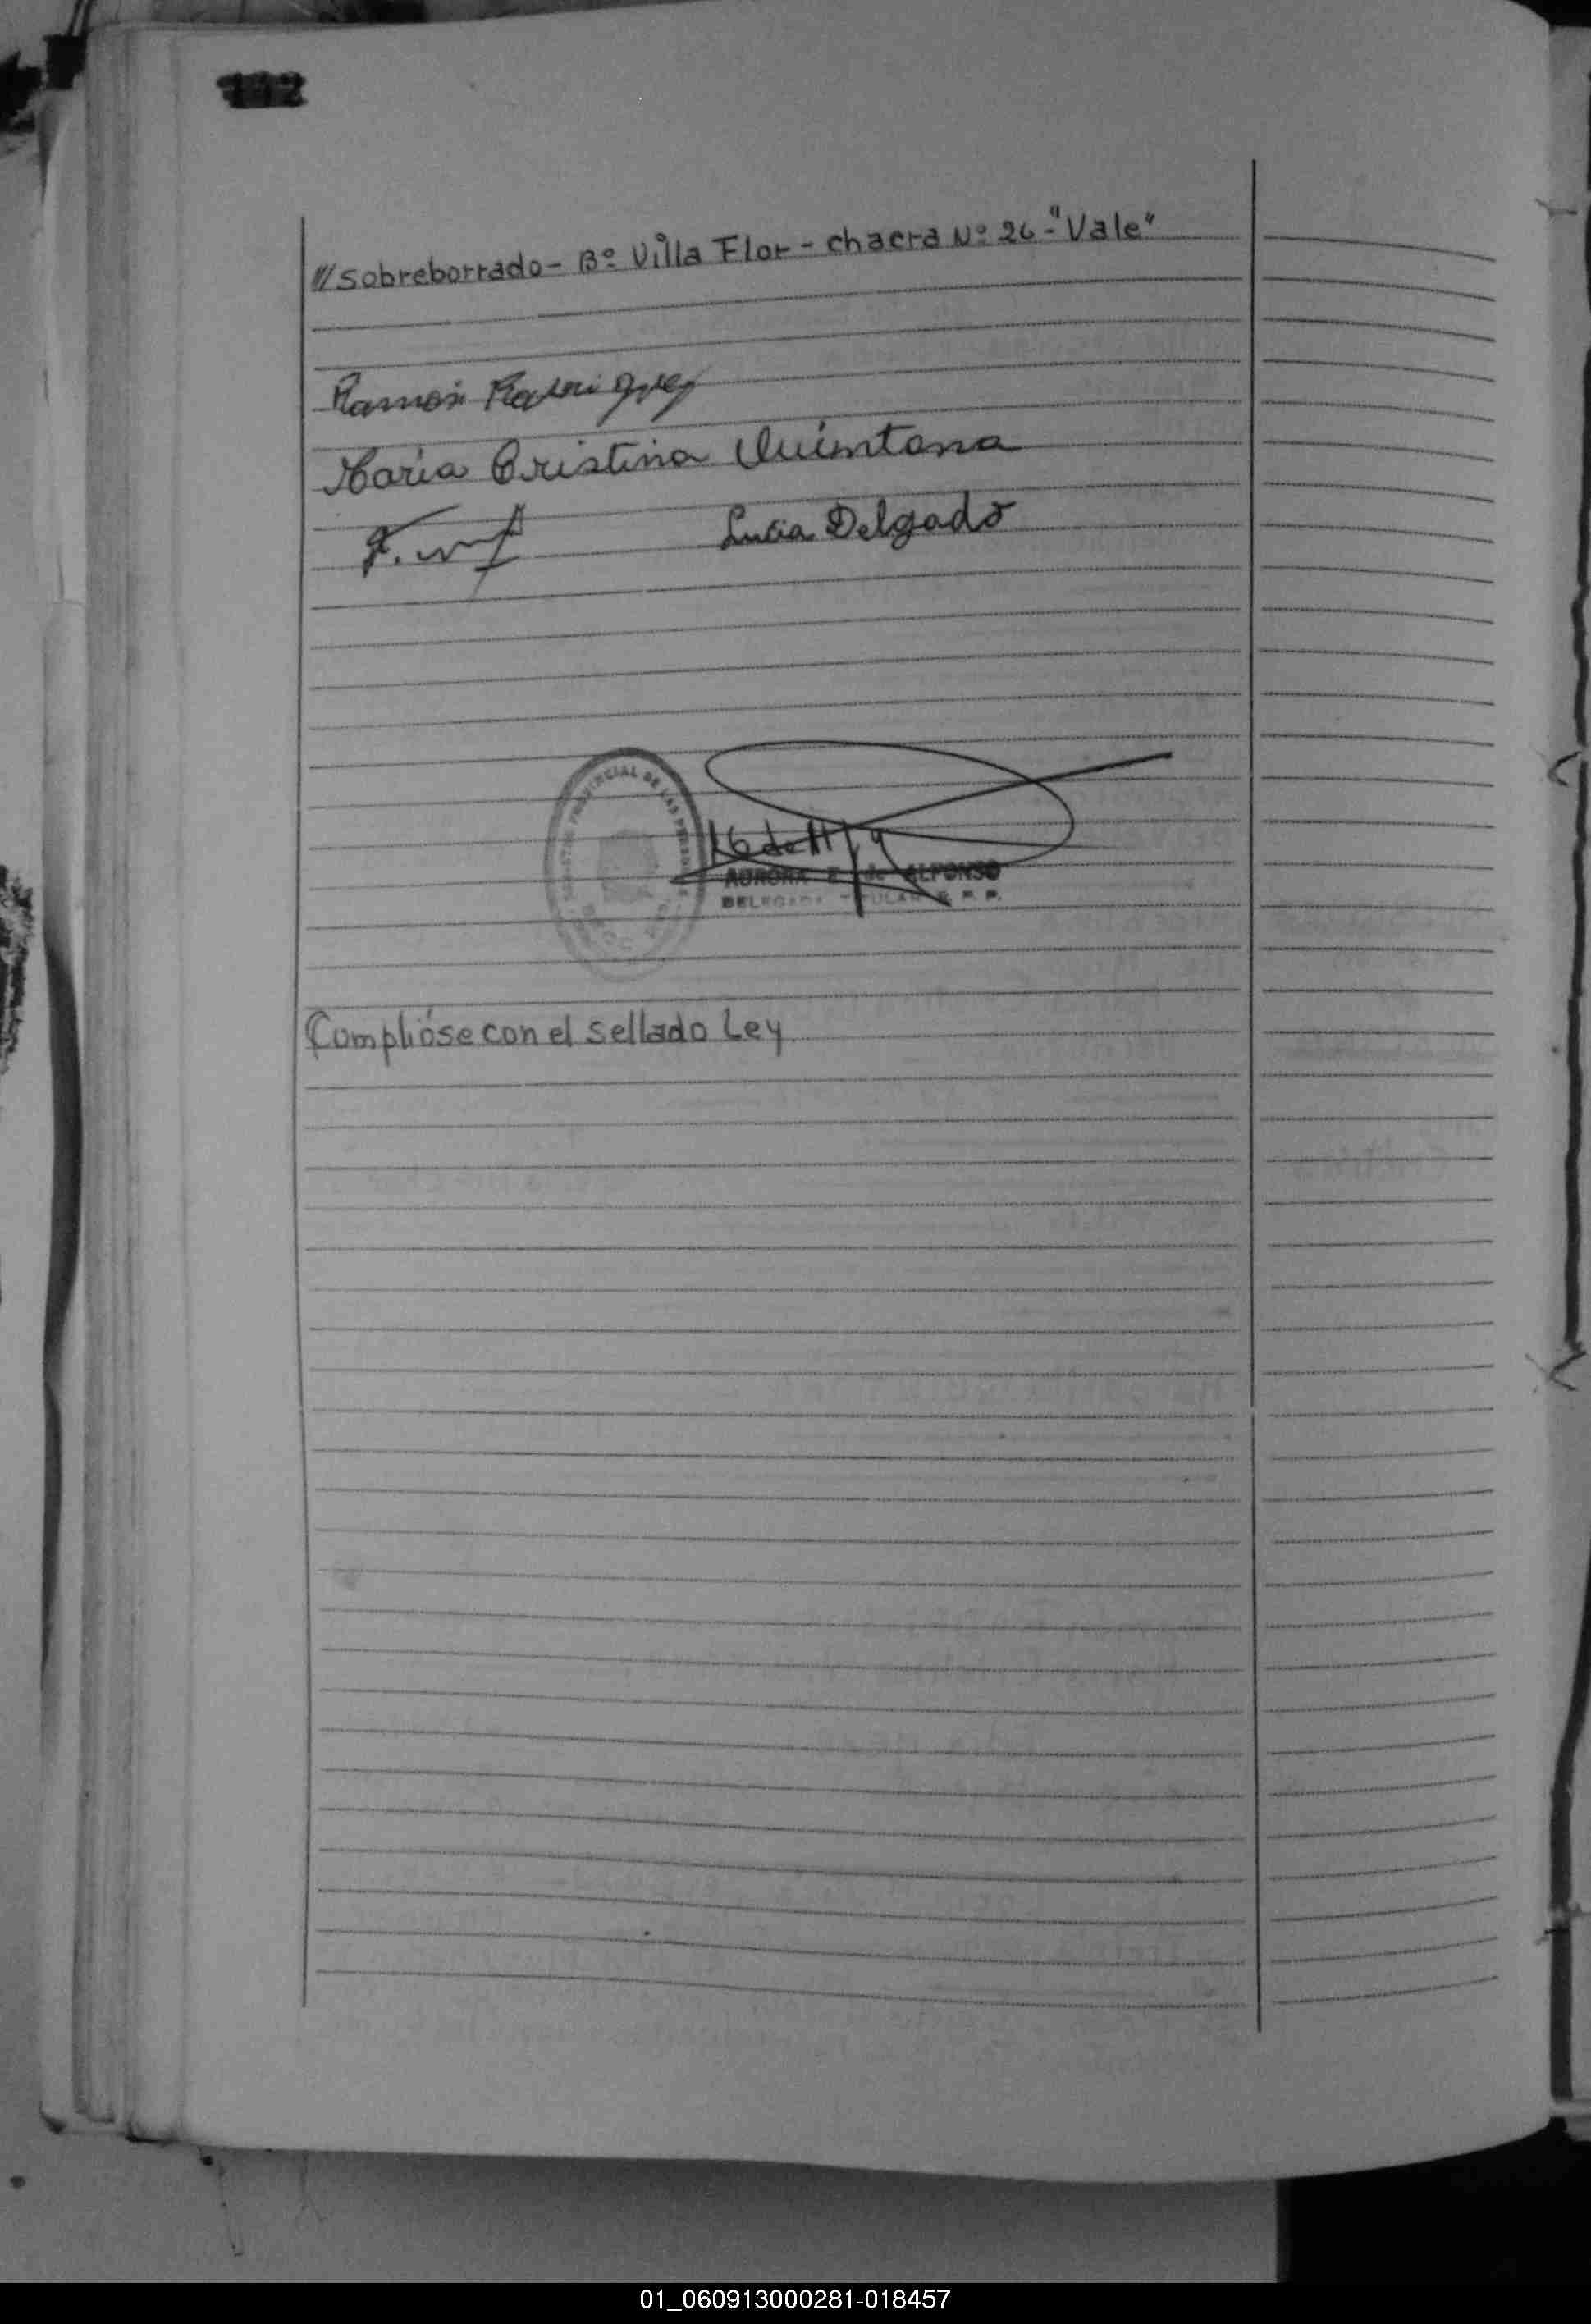 /// Sobreborrado - Bº Villa Flor - chacra Nº 26 - "Vale"
Ramón Rodriguez
Maria Cristina Quintana
Lucia Delgado
PROVINCIAL DE LAS PERSONAS
AURORA E. de ALFONSO
DELEGADA TITULAR R. P. P.
Complióse con el sellado Ley
01_060913000281-018457